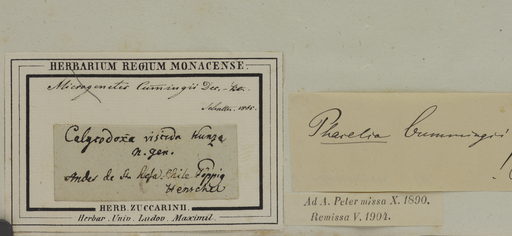 HERBARIUM REGIUM MONACENSE.
Microgenetes Cumingii Dec.
1890.
Calycodoxa viscida Kunze
n. gen.
Andes de Sta Rosa. Chile Pöppig
Henschel
HERB. ZUCCARINII.
Herbar. Univ. Ludov. Maximil.
Phacelia Cummingii
Ad A. Peter missa X. 1890.
Remissa V. 1904.